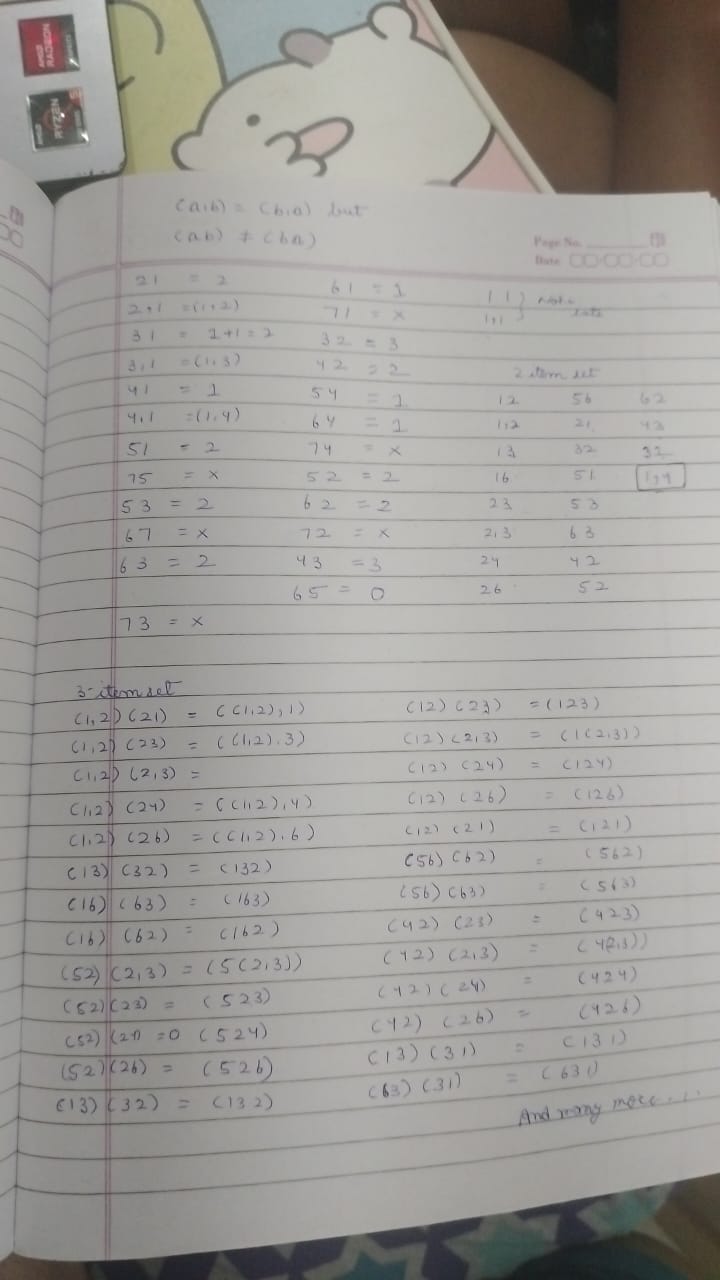 AMD
RADEON
AMD
RYZEN
5
(a,b) = (b,a) but
(ab) ≠ (ba)
Page No.
Date
21 = 2
2,1 = (1,2)
31 = 1+1 = 2
3,1 = (1,3)
41 = 1
4,1 = (1,4)
51 = 2
75 = x
53 = 2
67 = x
63 = 2
73 = x
61 = 1
71 = x
32 = 3
42 = 2
54 = 1
64 = 1
74 = x
52 = 2
62 = 2
72 = x
43 = 3
65 = 0
11 } not a
1,1
2 item set
12 56 62
1,2 21 43
13 32 32
16 51 1,4
23 53
2,3 63
24 42
26 52
3-item set
(1,2) (21) = ((1,2),1)
(1,2) (23) = ((1,2).3)
(1,2) (2,3) =
(1,2) (24) = ((1,2),4)
(1,2) (26) = ((1,2).6)
(13) (32) = (132)
(16) (63) = (163)
(16) (62) = (162)
(52) (2,3) = (5(2,3))
(52) (23) = (523)
(52) (24) =0 (524)
(52) (26) = (526)
(13) (32) = (132)
(12) (23) = (123)
(12) (2,3) = (1(2,3))
(12) (24) = (124)
(12) (26) = (126)
(12) (21) = (121)
(56) (62) = (562)
(56) (63) = (563)
(42) (23) = (423)
(42) (2,3) = (4(2,3))
(42) (24) = (424)
(42) (26) = (426)
(13) (31) = (131)
(63) (31) = (631)
And many more....